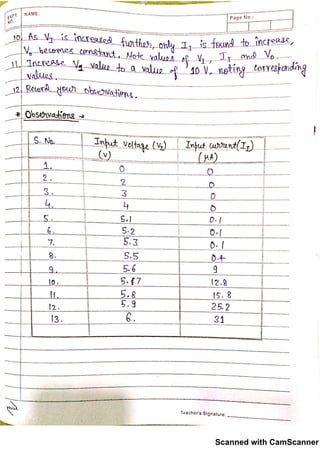 EXPT. NO. NAME: Page No.:
10. As V₁ is increased further, only I₁ is found to increase,
V₀ becomes constant. Note values of V₁, I₁ and V₀.
11. Increase V₁ value to a value of 10 V, noting corresponding
values.
12. Record your observations.
* Observations →
S. No. Input voltage (V₁) (V) Input current (I₁) (μA)
1. 0 0
2. 2 0
3. 3 0
4. 4 0
5. 5.1 0.1
6. 5.2 0.1
7. 5.3 0.1
8. 5.5 0.4
9. 5.6 9
10. 5.67 12.8
11. 5.8 15.8
12. 5.9 25.2
13. 6. 31
Teacher's Signature:
Scanned with CamScanner